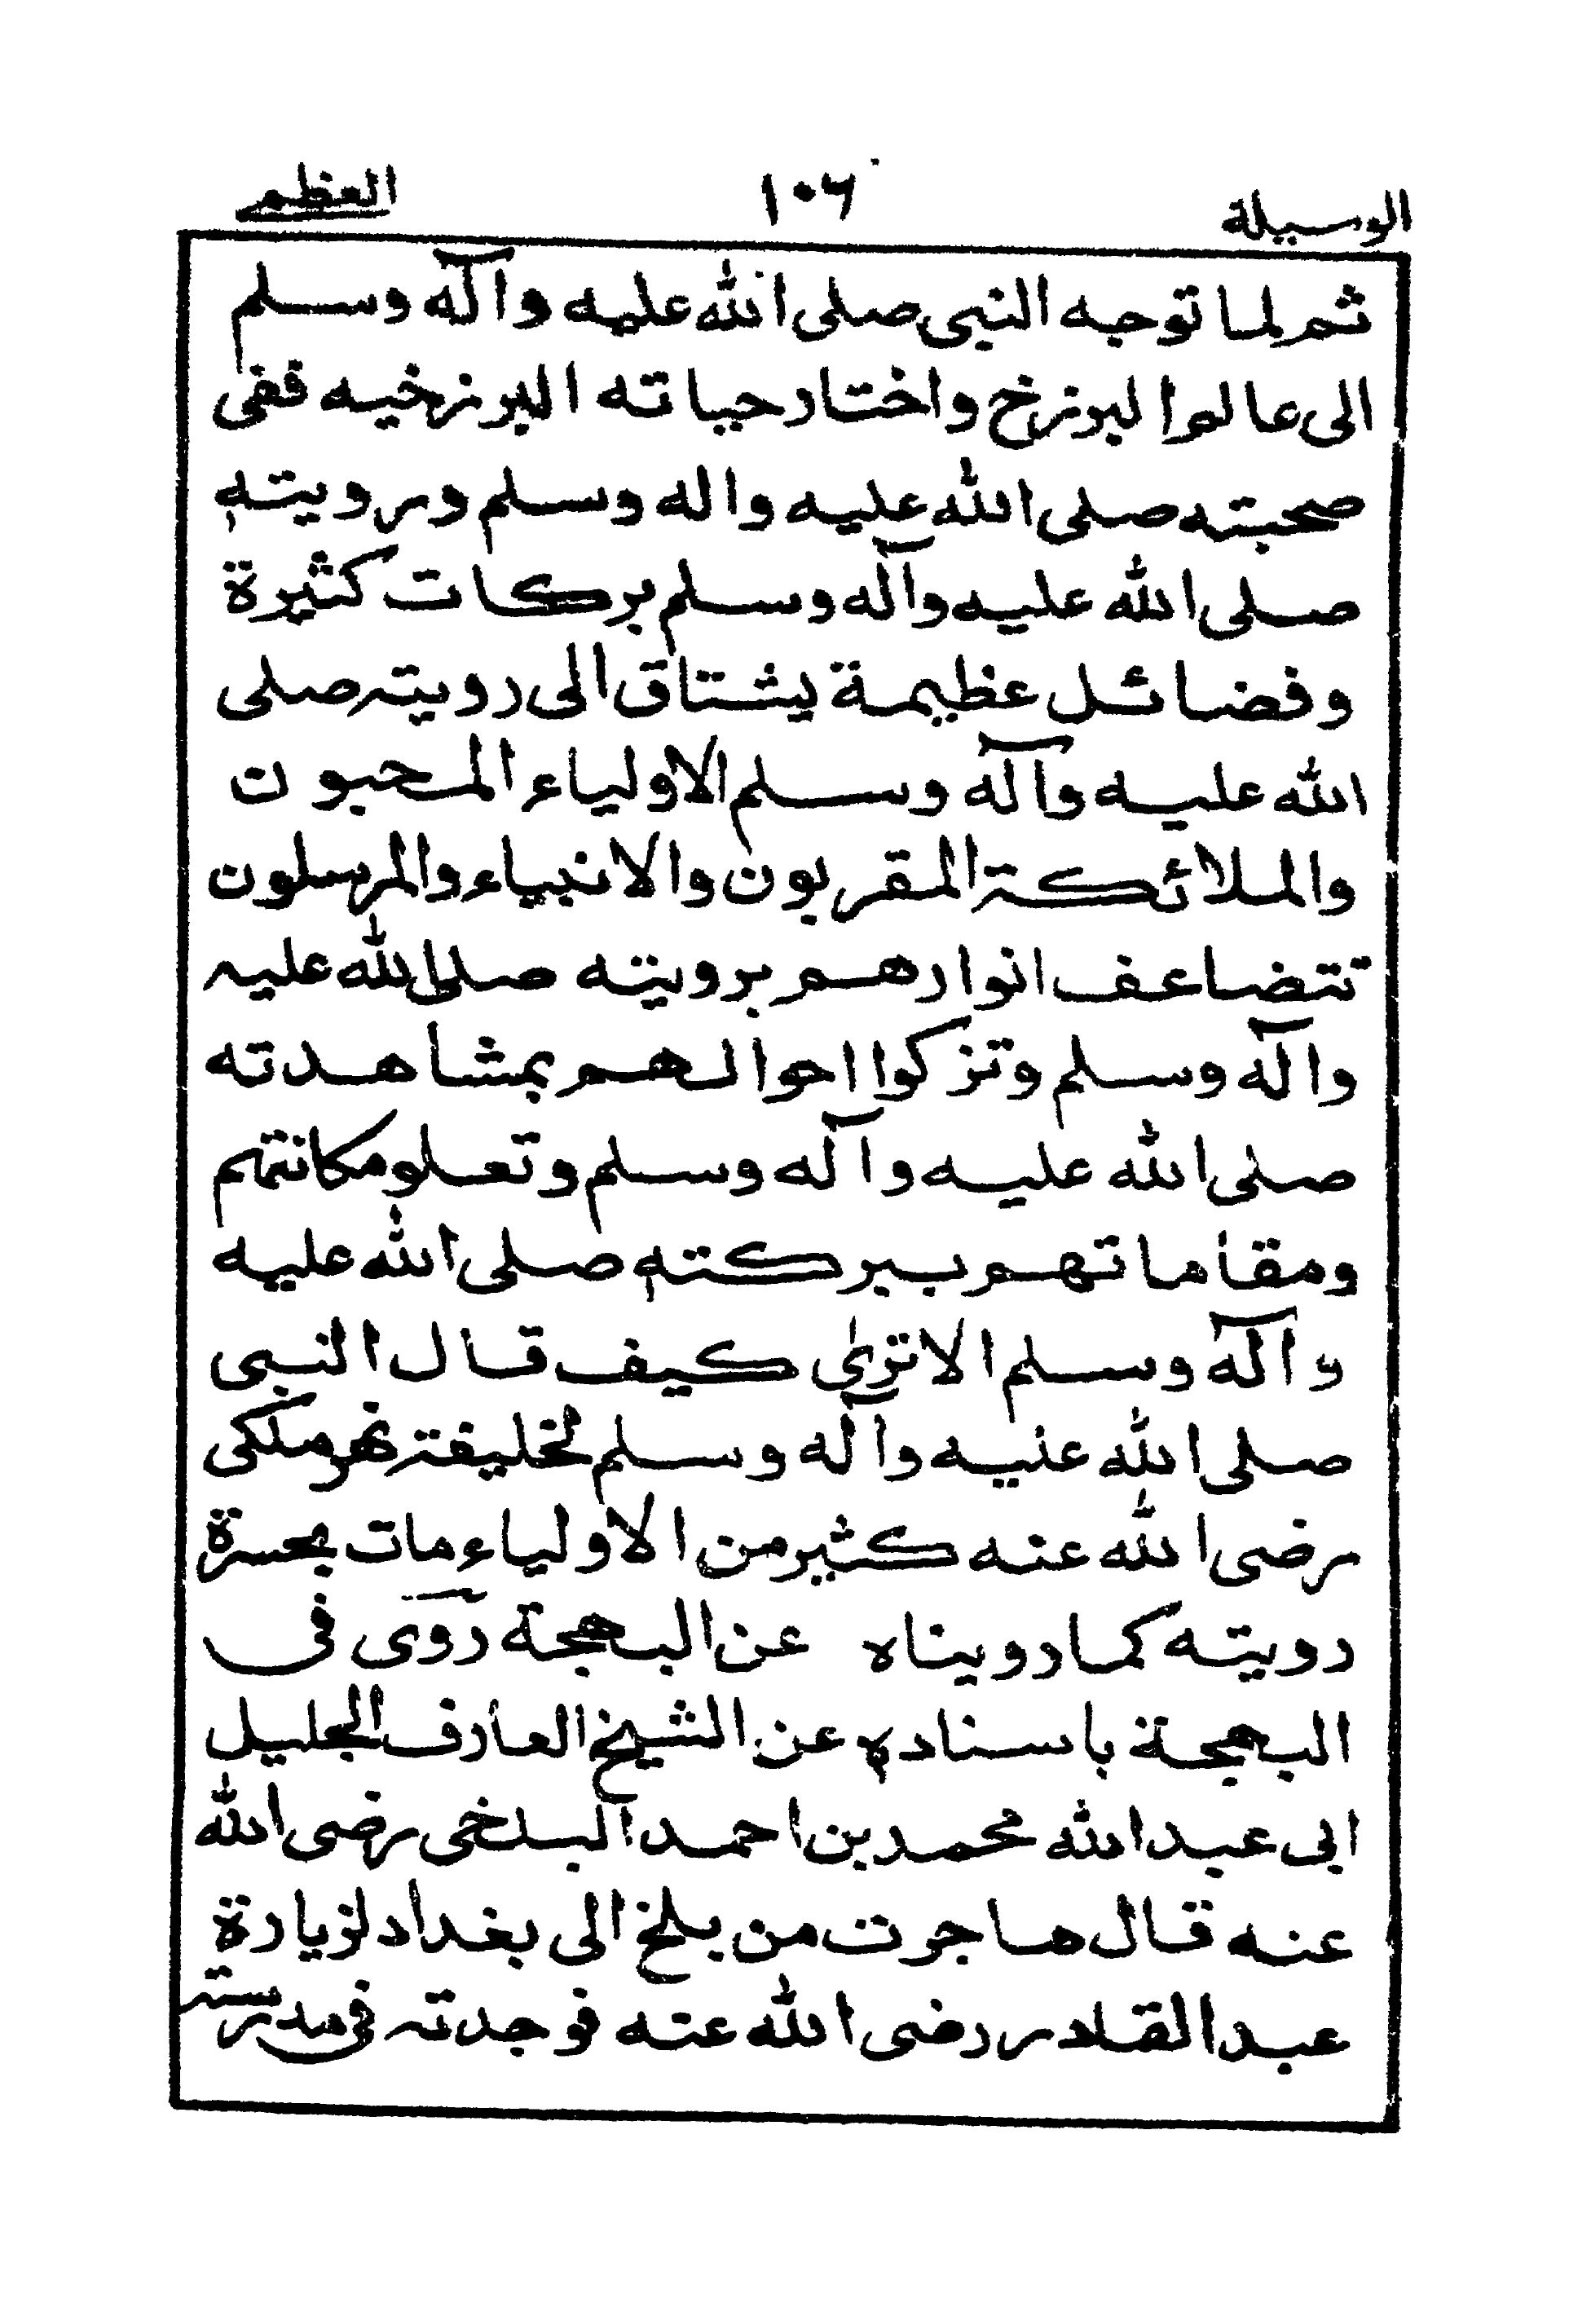 الوسيلة ١٠٦ العظمى
ثم لما توجه النبى صلى الله عليه وآله وسلم
الى عالم البرزخ واختار حياته البرزخيه ففى
صحبته صلى الله عليه واله وسلم ورويته
صلى الله عليه وآله وسلم بركات كثيرة
وفضائل عظيمة يشتاق الى رويته صلى
الله عليه وآله وسلم الاولياء المحبون
والملائكة المقربون والانبياء والمرسلون
تتضاعف انوارهم برويته صلى الله عليه
وآله وسلم وتزكوا احوالهم بمشاهدته
صلى الله عليه وآله وسلم وتعلو مكانتهم
ومقاماتهم ببركته صلى الله عليه
وآله وسلم الا ترى كيف قال النبى
صلى الله عليه وآله وسلم لخليفة نهر ملكى
رضى الله عنه كثير من الاولياء مات بحسرة
رويته كما رويناه عن البهجة روى فى
البهجة باسناده عن الشيخ العارف الجليل
ابى عبد الله محمد بن احمد البلخى رضى الله
عنه قال هاجرت من بلخ الى بغداد لزيارة
عبد القادر رضى الله عنه فوجدته فى مدرسته